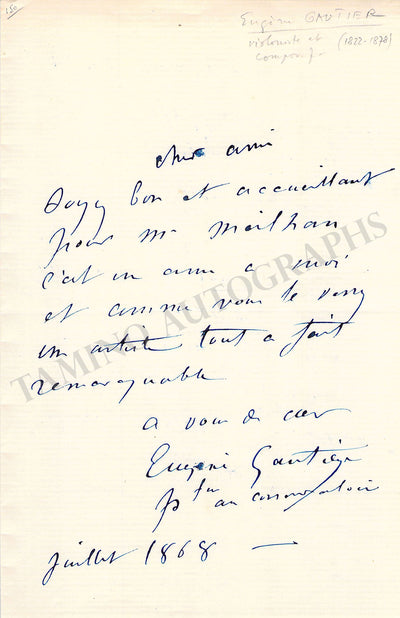 150
Eugène GAUTIER
violoniste et (1822-1878)
compos.
cher ami
Soyez bon et accueillant
pour Mr Meilhan
c'est un ami a moi
et comme vous le verrez
un artiste tout a fait
remarquable
a vous de cœur
Eugene Gautier
pfr au conservatoire
juillet 1868 —
TAMINO AUTOGRAPHS